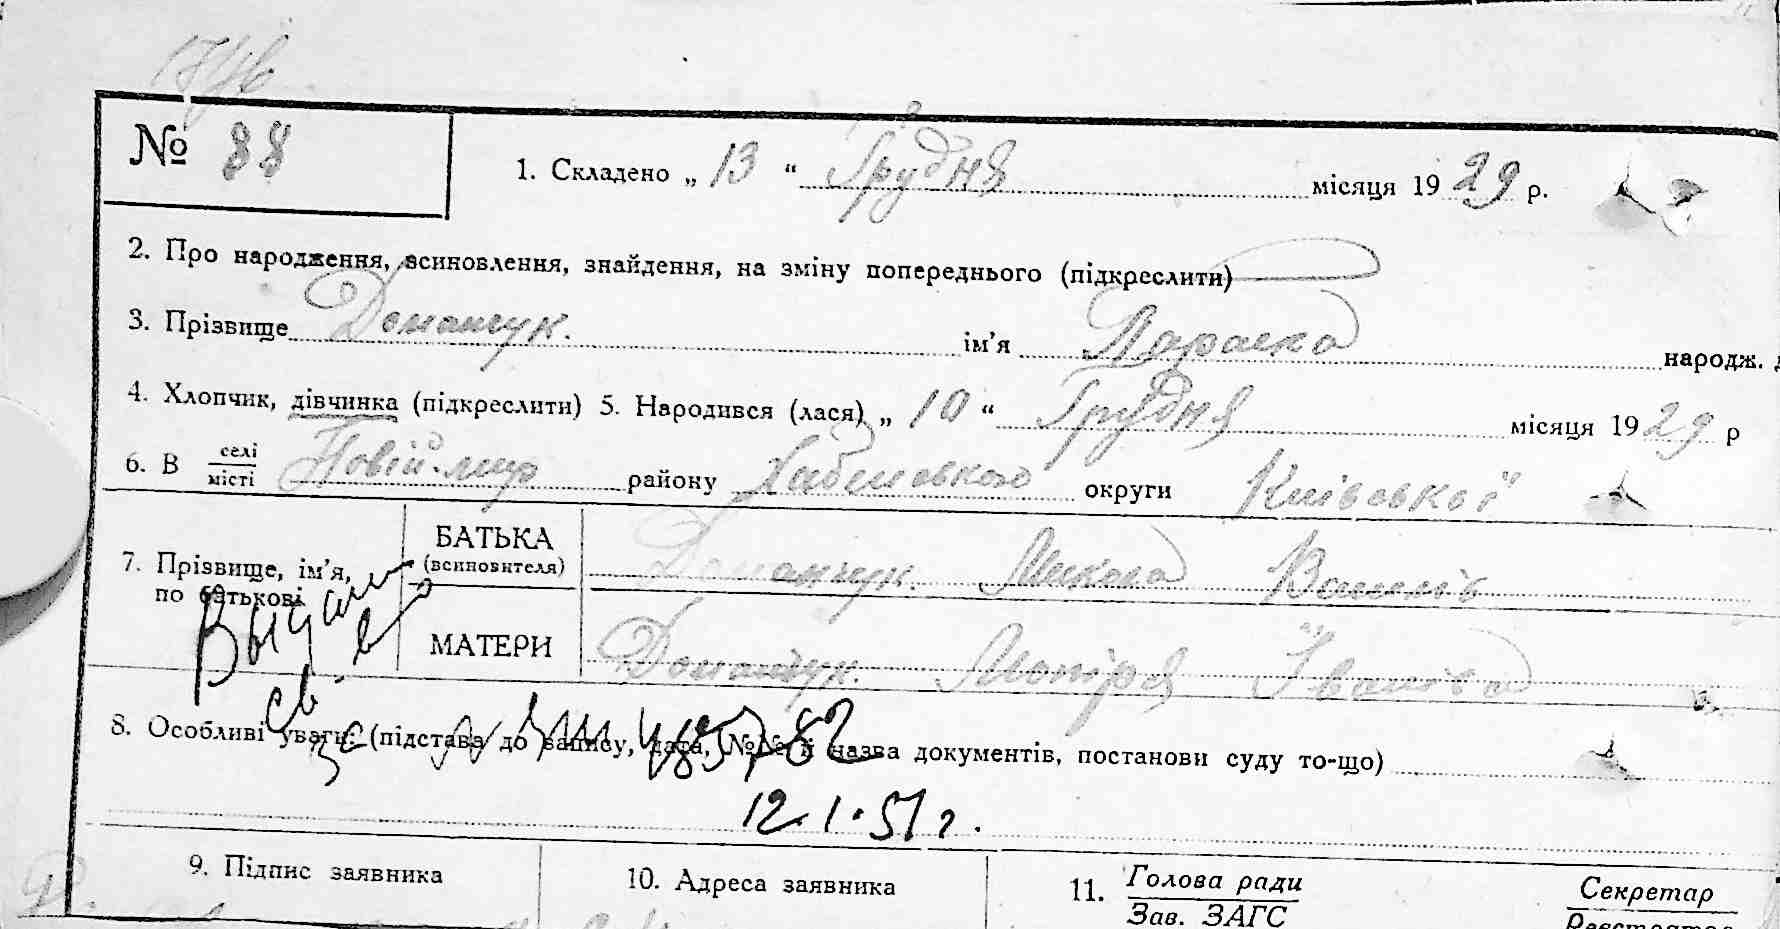 № 88
1. Складено „ 13 “ Грудня місяця 1929 р.
2. Про народження, всиновлення, знайдення, на зміну попереднього (підкреслити)
3. Прізвище Доманчук. ім’я Параска народж.
4. Хлопчик, дівчинка (підкреслити) 5. Народився (лася) „ 10 “ Грудня місяця 1929 р
6. В селі місті Новій-мир району Хабенського округи Київської
7. Прізвище, ім’я, по батькові
БАТЬКА (всиновителя) Доманчук. Микола Василів
МАТЕРИ Доманчук. Мотря Іванівна
Выдано
св
8. Особливі уваги: (підстава до запису, дата, №№ й назва документів, постанови суду то-що)
12.1.51 г.
9. Підпис заявника
10. Адреса заявника
11. Голова ради Зав. ЗАГС
Секретар